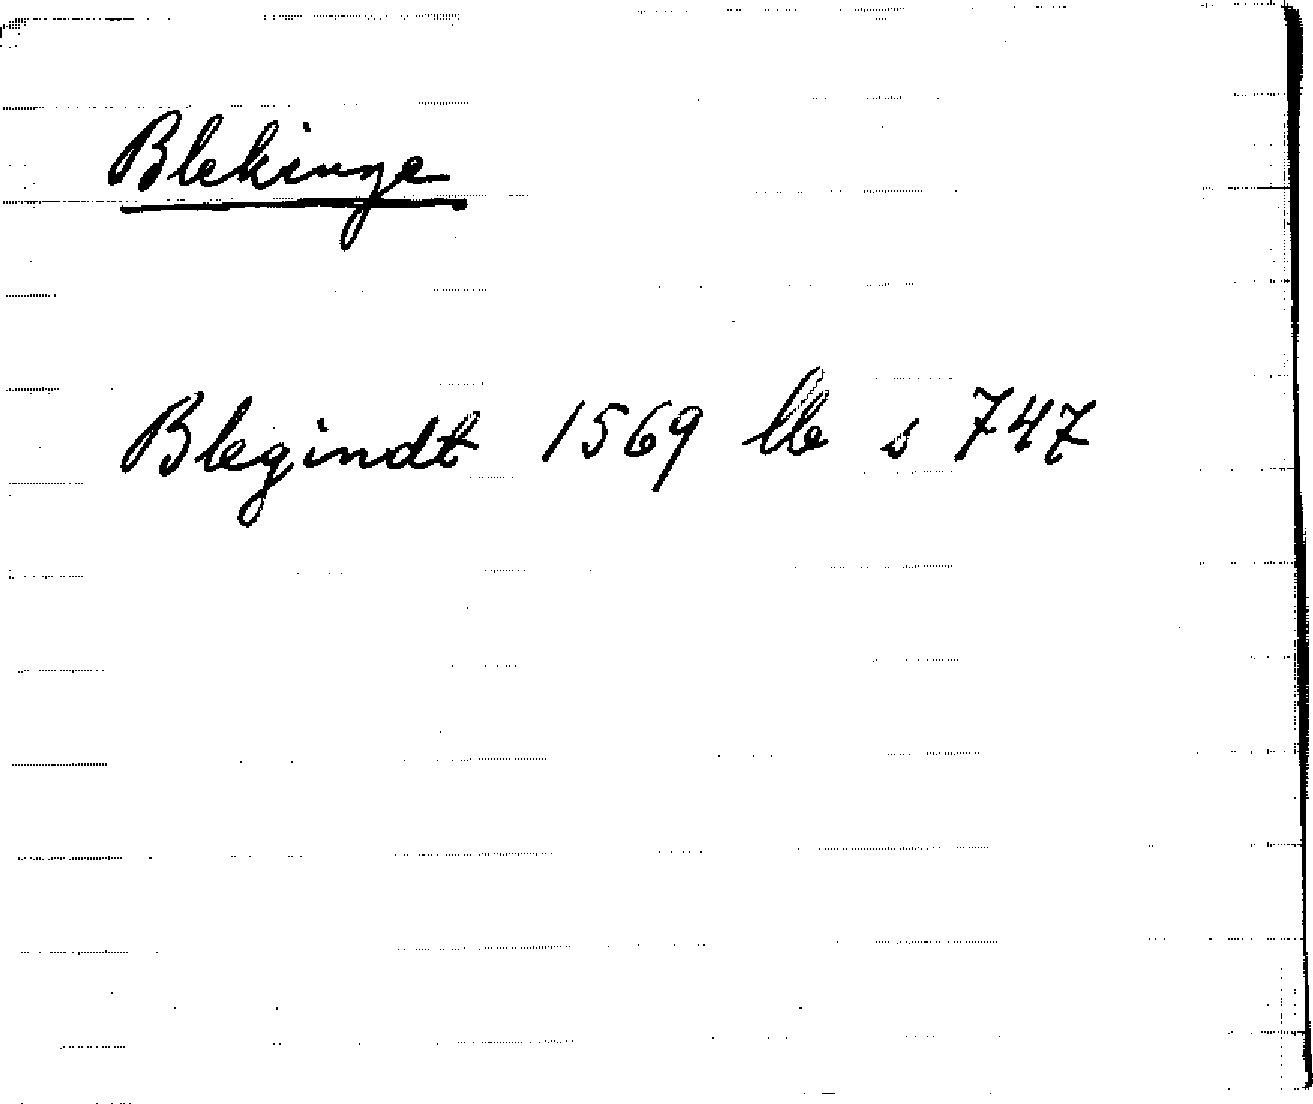 Blekinge
Blegindt 1569 lb s 747